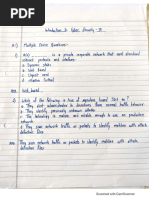 Introduction to Cyber Security - III
Q1) Multiple Choice Questions:-
i) A(n) is a private corporate network that uses standard
internet protocols and interfaces.
a
b Web based
c
d
Ans Web based.
ii) Which of the following is true of signature based IDSes?
a They alert administrators to deviations from normal traffic behavior.
b They identify previously unknown attacks.
c The technology is mature and reliable enough to use on production
networks.
d They scan network traffic or packets to identify matches with attack
definition files.
Ans They scan network traffic or packets to identify matches with attack
definition files.
Scanned with CamScanner